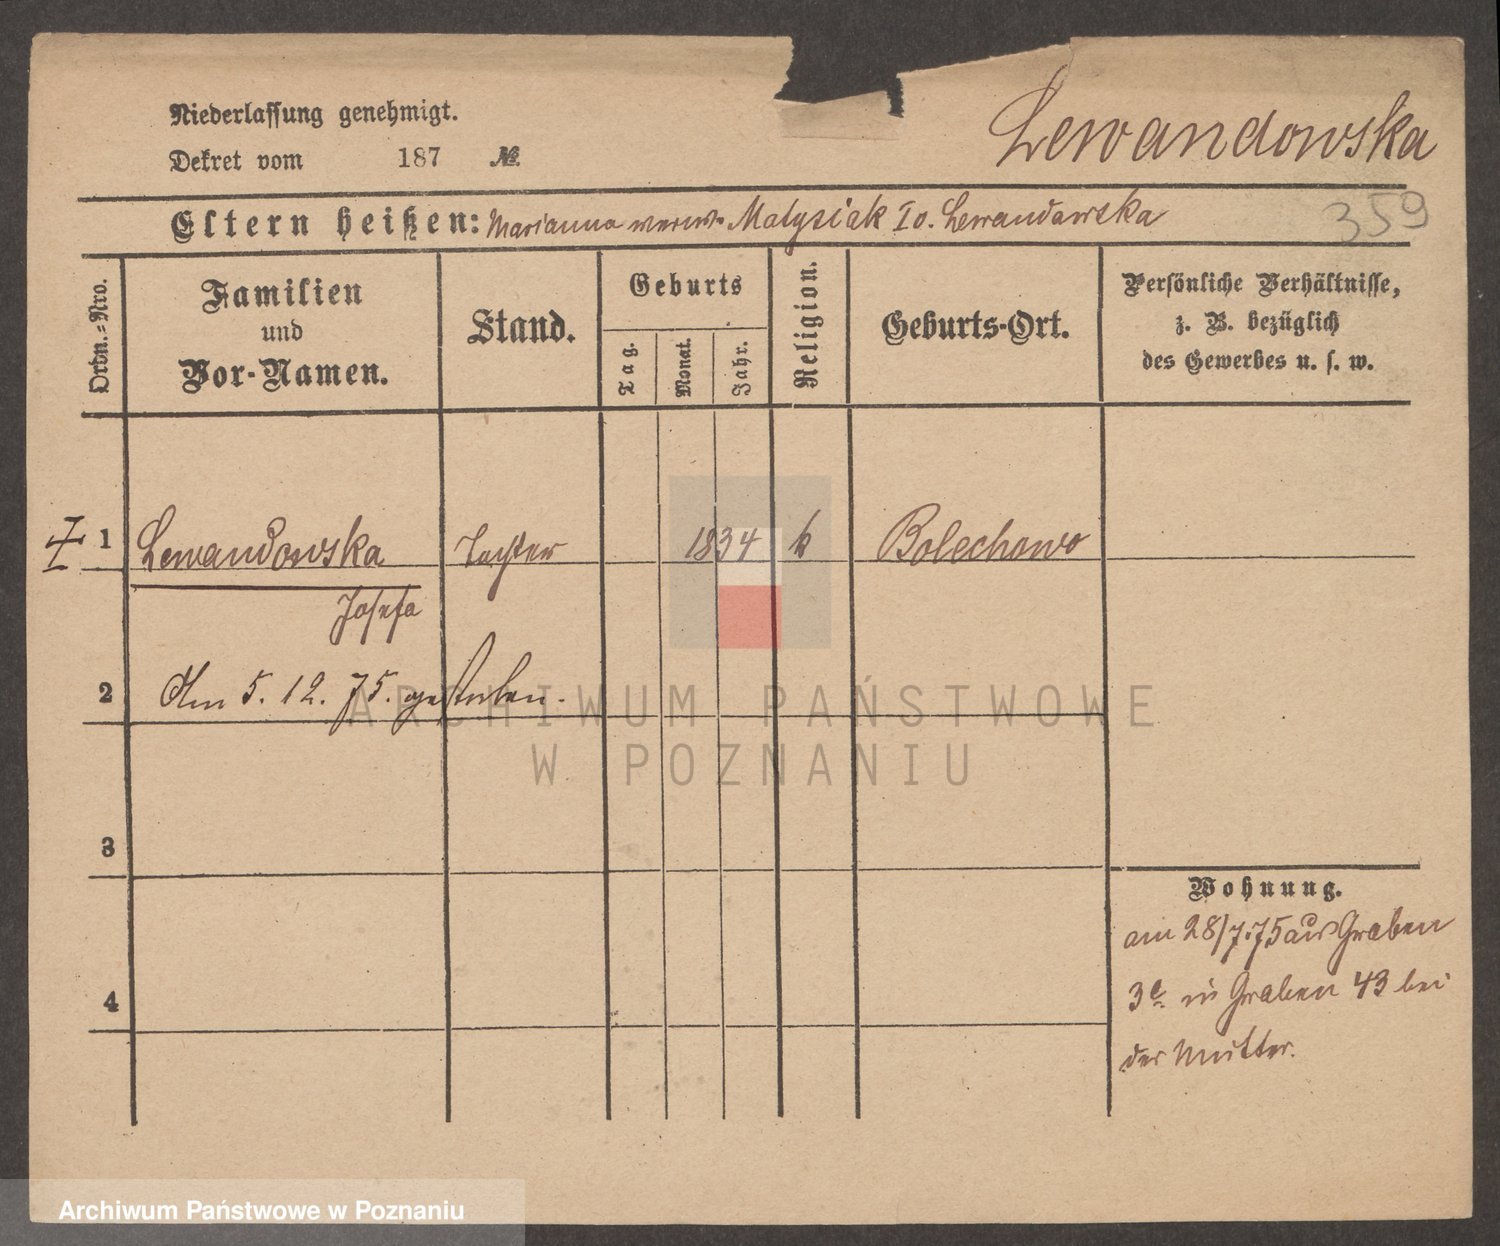 Niederlassung genehmigt.
Dekret vom 187 №.
Lewandowska
359
Eltern heißen: Marianna verwt. Matysiak Io. Lewandowska
Ordn.=Nro.
Familien
und
Vor-Namen.
Stand.
Geburts
Tag.
Monat.
Jahr.
Religion.
Geburts-Ort.
Persönliche Verhältnisse,
z. B. bezüglich
des Gewerbes u. s. w.
1 Lewandowska Tochter 1834 k Bolechowo
Josefa
2 Am 5. 12. 75. gestorben.
3
4
Wohnung.
am 28/7.75 aus Graben
3c in Graben 43 bei
der Mutter.
ARCHIWUM PAŃSTWOWE
W POZNANIU
Archiwum Państwowe w Poznaniu